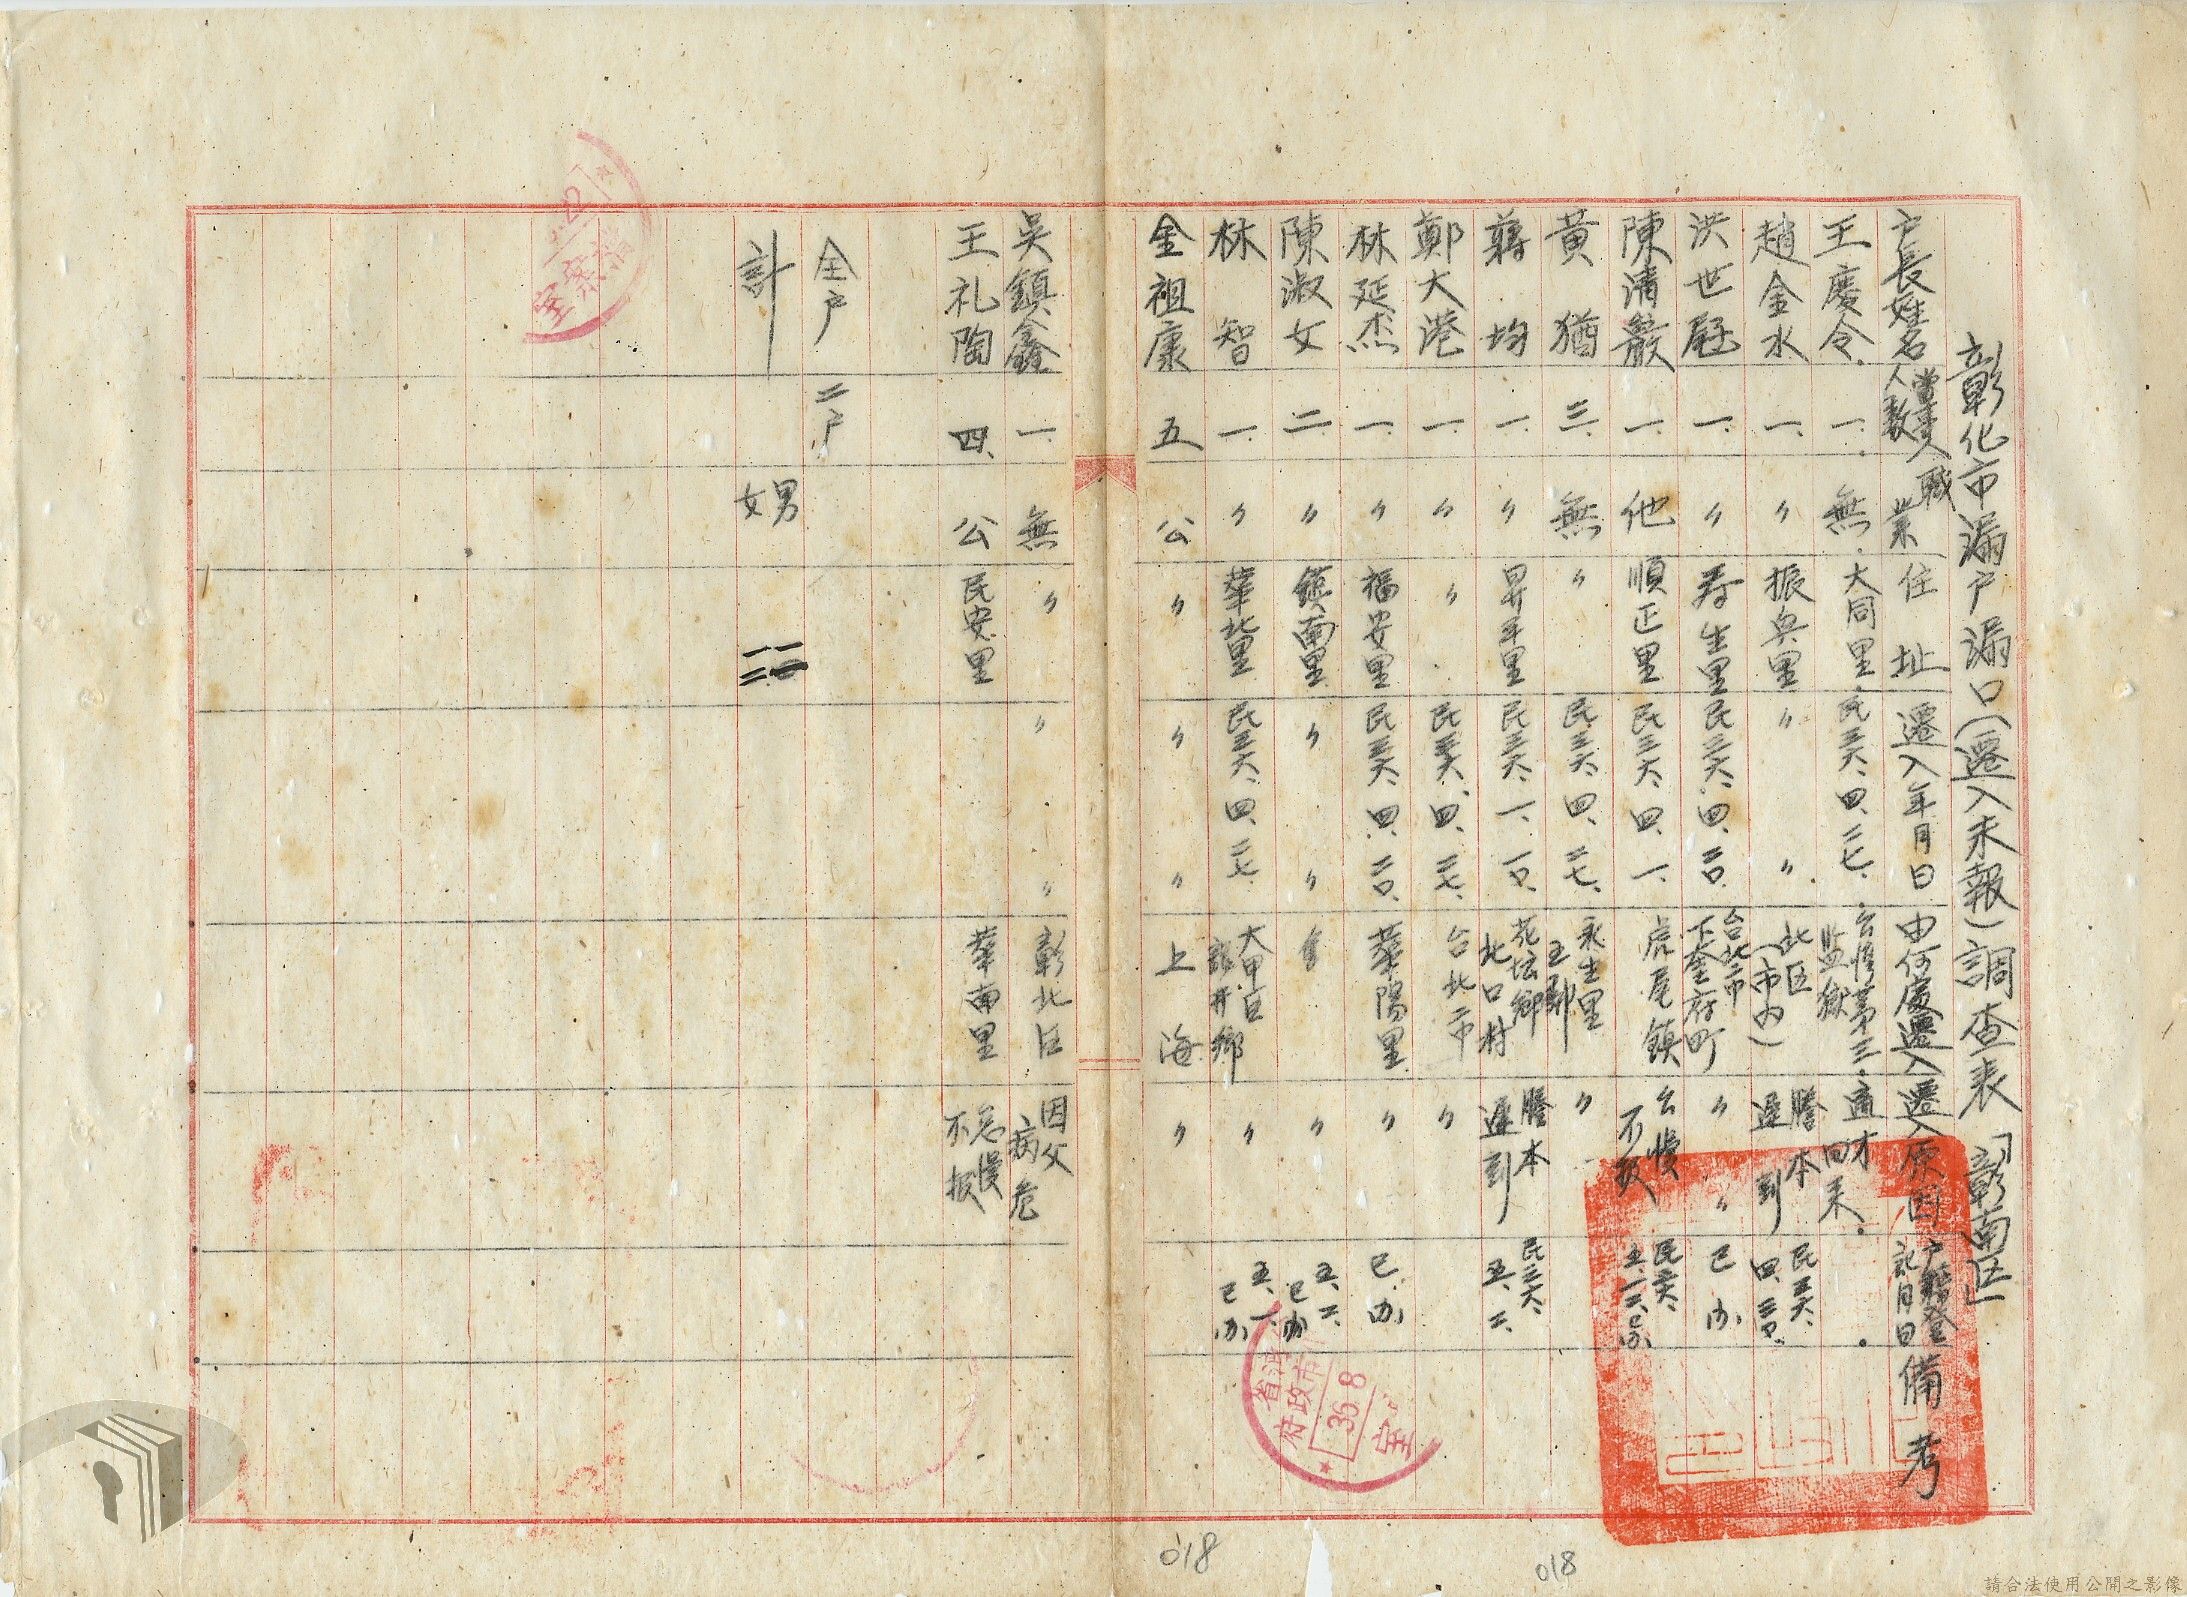 彰化市漏户漏口（遷入未報）調查表「彰南区」
户長姓名 當事人人数 職業 住址 遷入年月日 由何處遷入 遷入原因 户籍登記月日 備考
王慶令 一 無 大同里 民三六、四、二七 監獄 回来
趙金水 一 〃 振興里 〃 〃 此区（市内） 謄本遅到 民三六、四、三〇
洪世 一 〃 寿生里 民三六、四、二〇 台北市下奎府町 〃 〃 已办
陳清 一 他 順正里 民三六、四、一 虎尾鎮
黃猶 三 無 〃 民三六、四、二七 永生里 〃
蔣均 一 〃 昇平里 民三六、一、一〇 花坛鄉北口村 謄本遅到 民三六、五、二
鄭大港 一 〃 〃 民三六、四、二七 台北市 〃
林延杰 一 〃 福安里 民三六、四、二〇 華陽里 〃 已办
陳淑女 二 〃 鎮南里 〃 〃 〃 五、二、已办
林智 一 〃 華北里 民三六、四、二七 大甲区龍井鄉 〃 五、一、已办
金祖康 五 公 〃 〃 〃 上海 〃
吳鎮鑫 一 無 〃 〃 〃 彰北区 因父病危
王礼陶 四 公 民安里 華南里 怠慢不报
全户 二户
計 男
女
省
府政市
36 8
室
018
018
請合法使用公開之影像